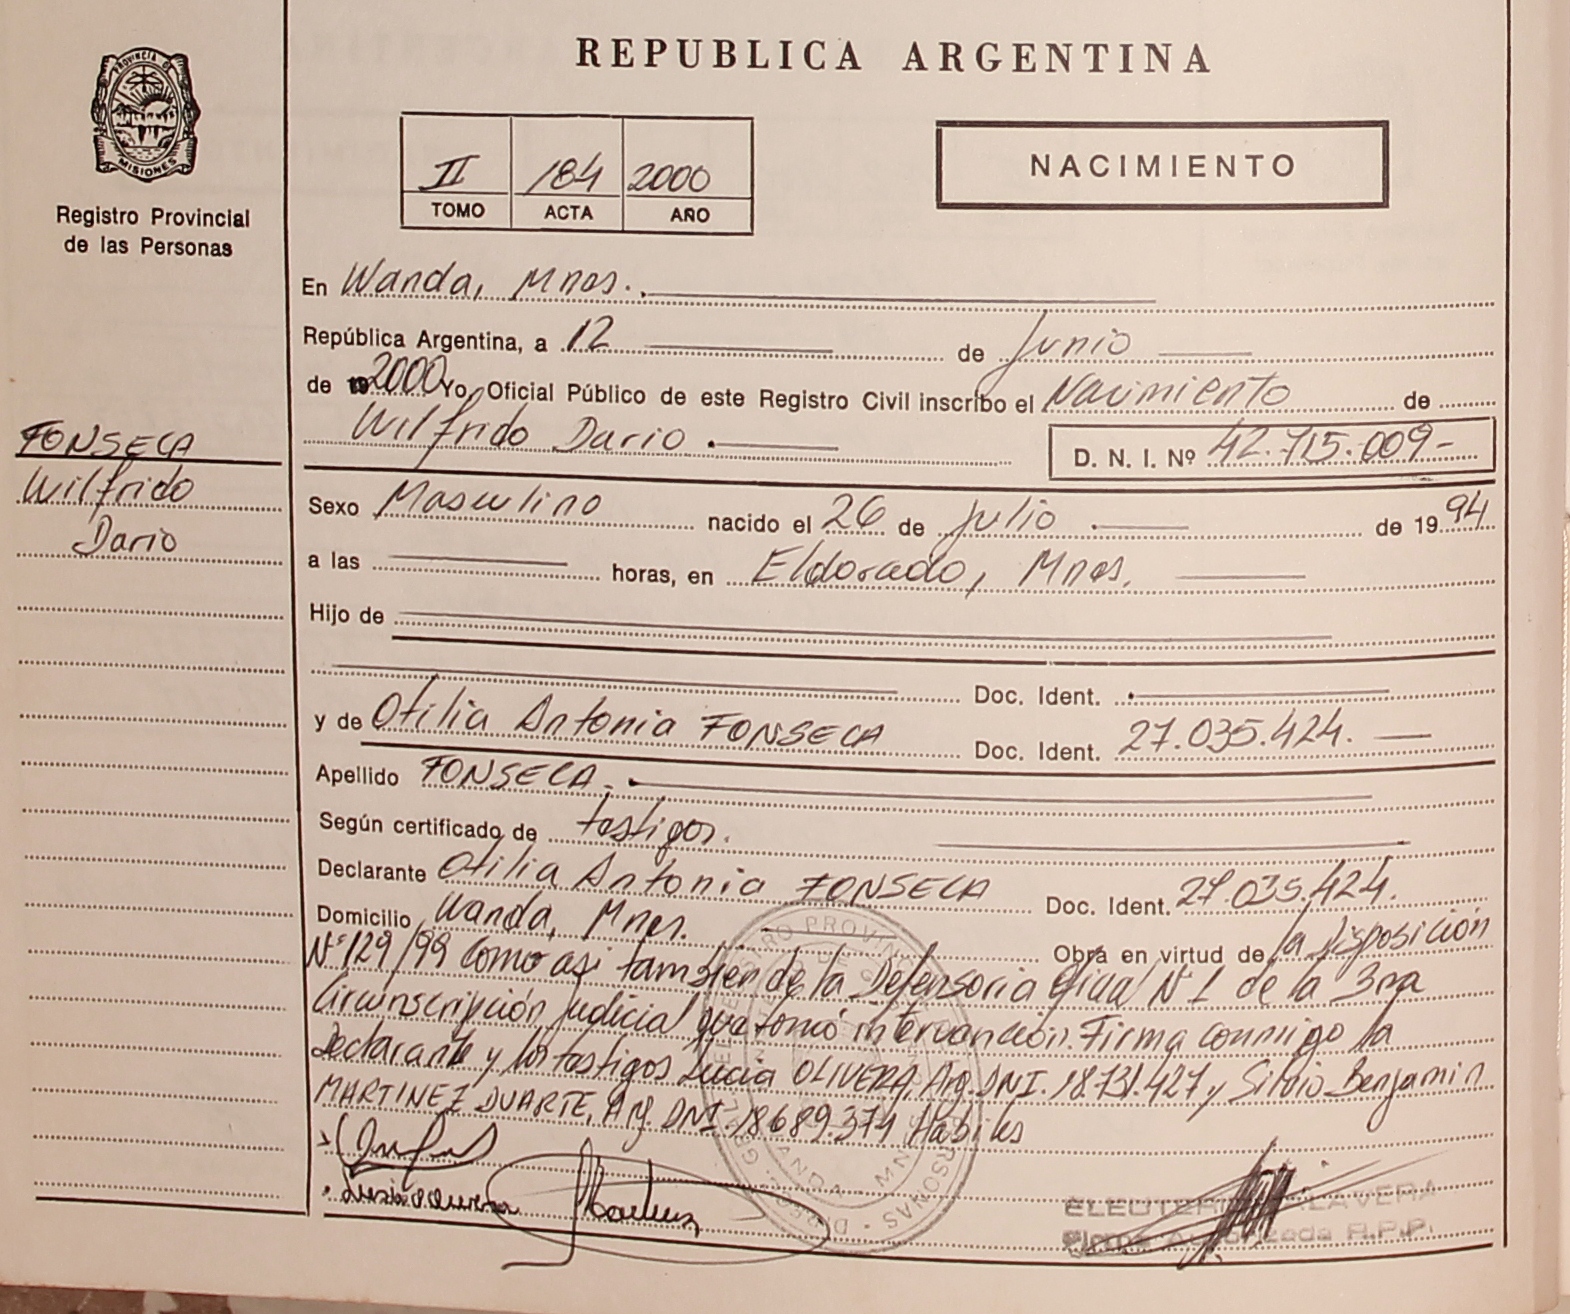 REPUBLICA ARGENTINA
PROVINCIA DE
MISIONES
Registro Provincial
de las Personas
II 184 2000
TOMO ACTA AÑO
NACIMIENTO
En Wanda, Mnes.
República Argentina, a 12 de Junio
de 19 2000 Yo, Oficial Público de este Registro Civil inscribo el Nacimiento de
Wilfrido Dario
D. N. I. Nº 42.715.009-
FONSECA
Wilfrido
Dario
Sexo Masculino nacido el 26 de Julio de 19 94
a las horas, en Eldorado, Mnes.
Hijo de
Doc. Ident.
y de Otilia Antonia FONSECA Doc. Ident. 27.035.424.
Apellido FONSECA.
Según certificado de testigos.
Declarante Otilia Antonia FONSECA Doc. Ident. 27.035.424.
Domicilio Wanda, Mnes. Obra en virtud de la Disposición
Nº 129/99 como asi tambien de la Defensoria Oficial Nº 1 de la 3ra
Circunscripción Judicial que tomó intervención. Firma conmigo la
Declarante y los testigos Lucia OLIVERA, Arg. DNI. 18.731.427 y Silvio Benjamin
MARTINEZ DUARTE, Arg. DNI. 18689.374 Habiles